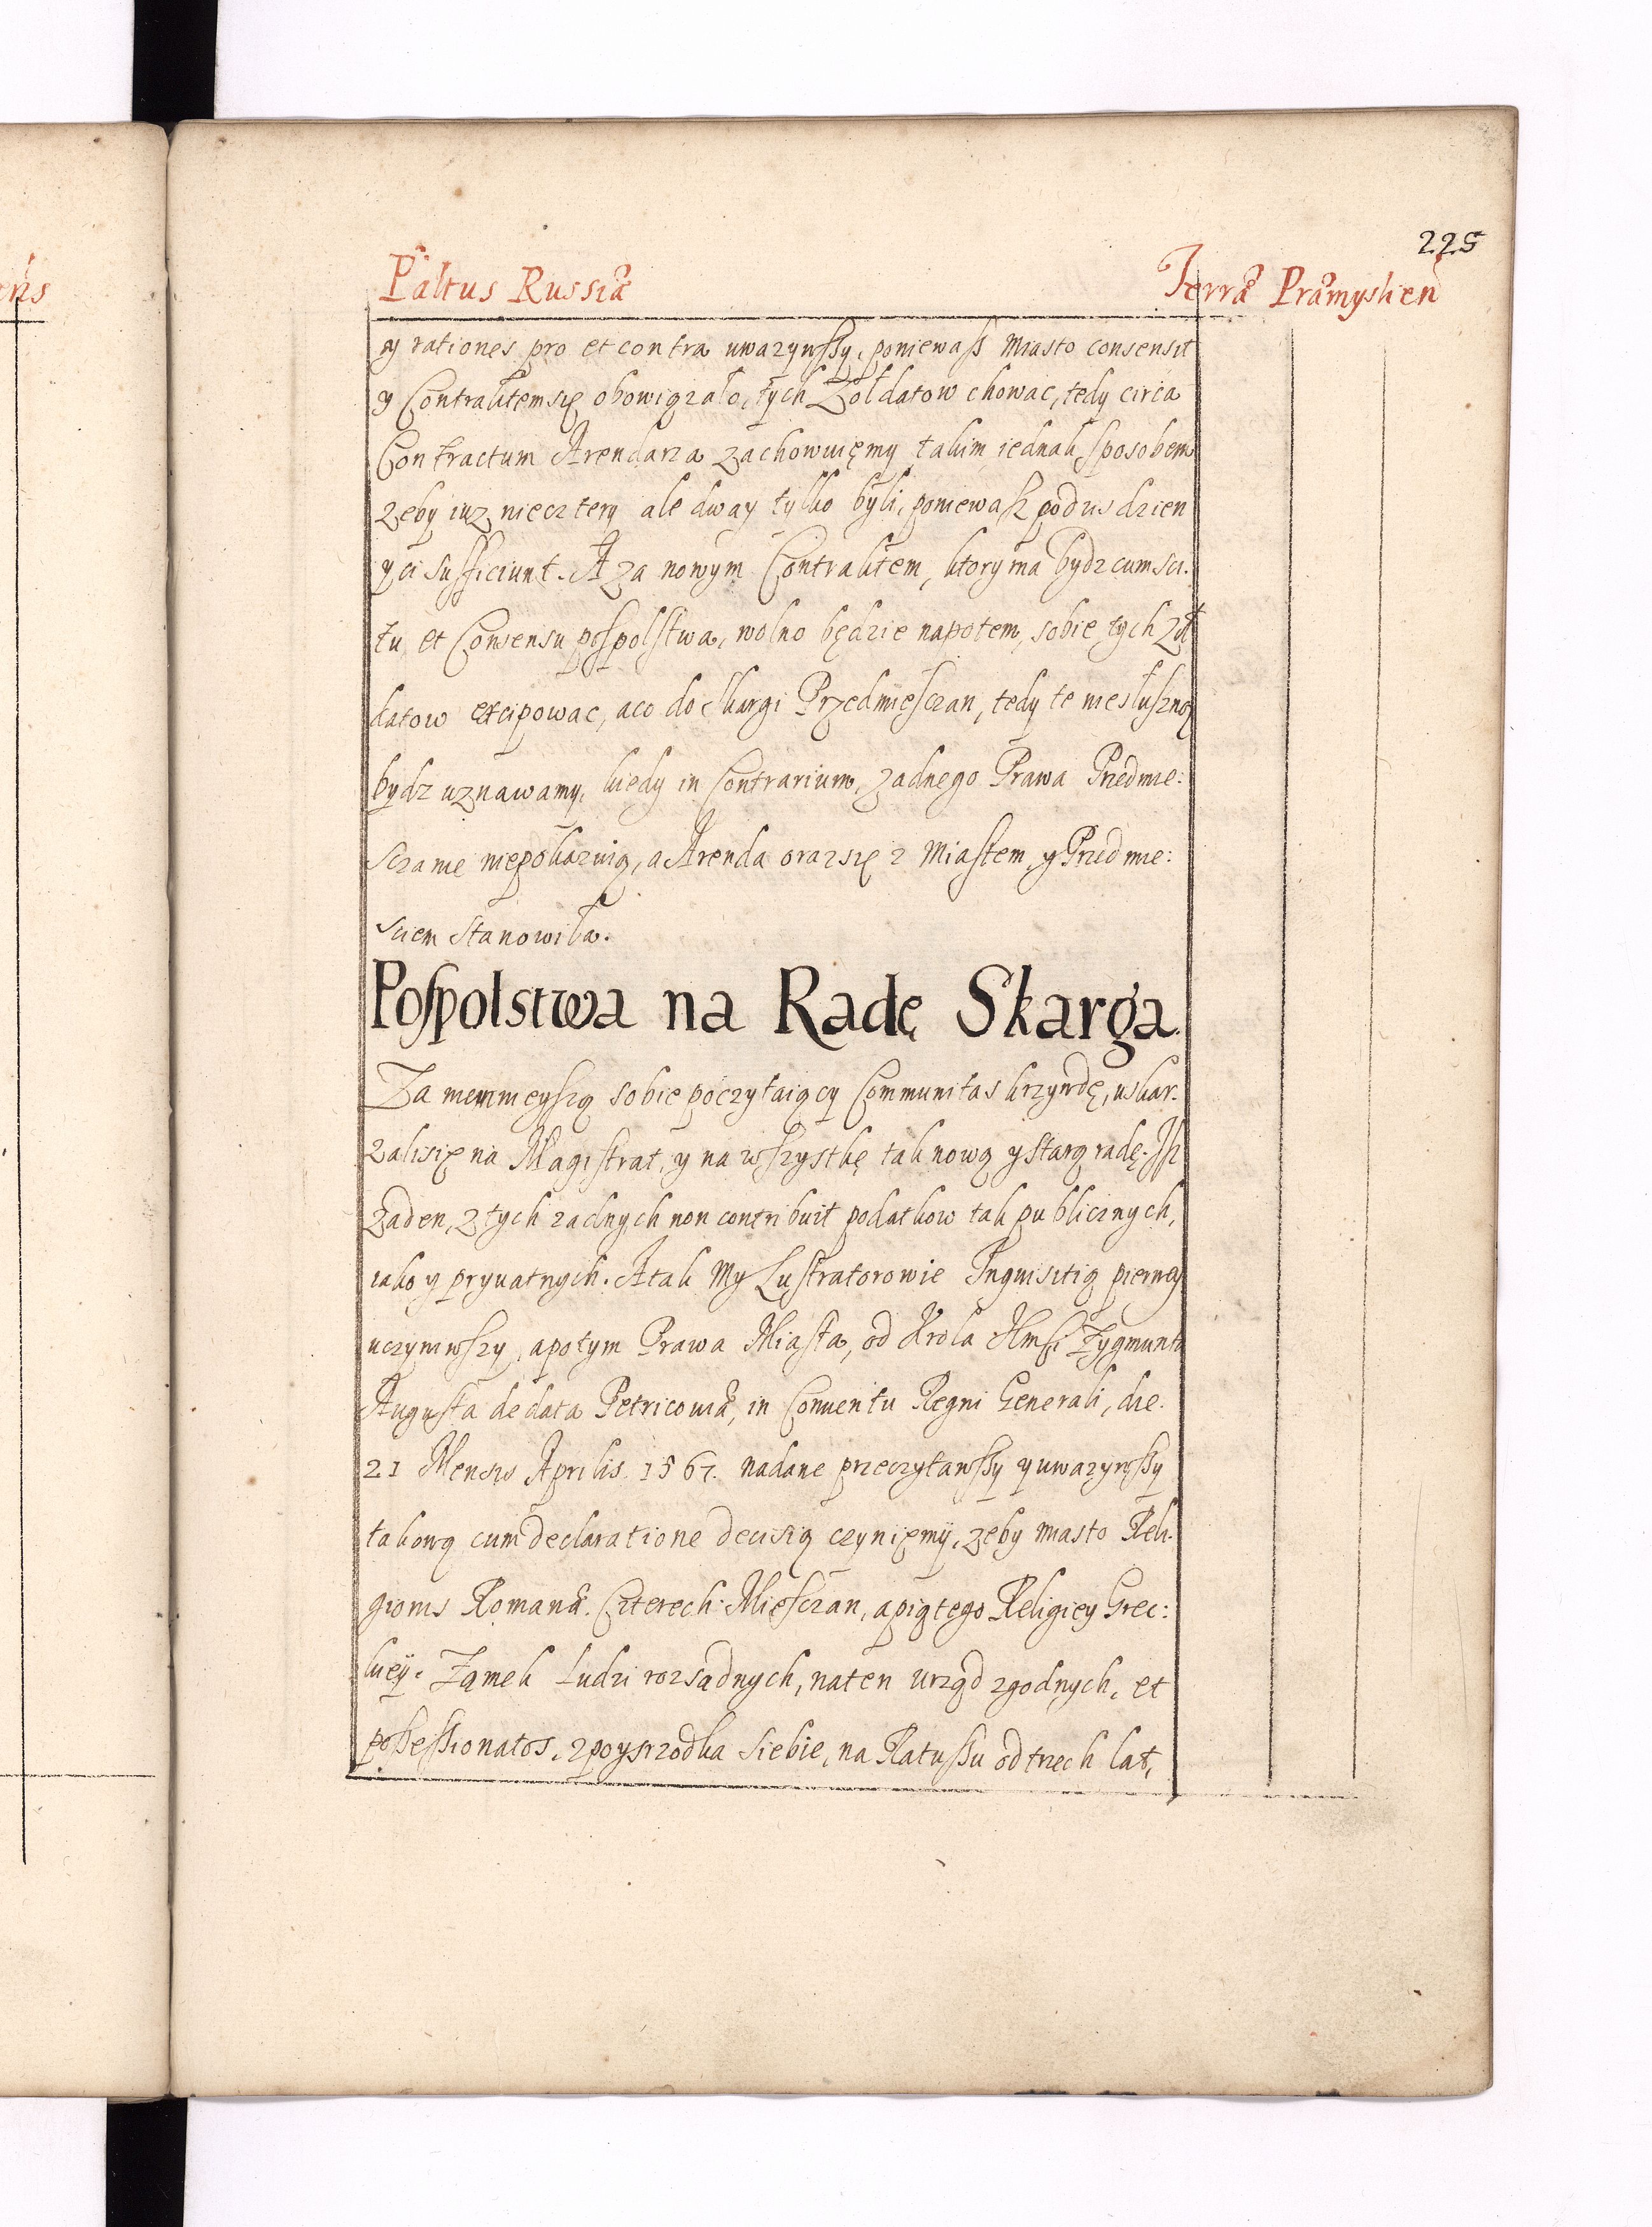 225
Pałtus Russiæ Terræ Præmyslien
y rationes pro et contra uwazywssy, poniewass Miasto consensit
y Contraktem się obowiązało, tych Zołdatow chowac, tedy circa
Contractum Arendarza zachowuięmy takim iednak sposobem
zeby iuz nie cztery ale dway tylko byli, poniewasz podus dzien
y ci sufficiunt. A za nowym Contraktem, ktory ma bydz cum sci-
tu et Consensu pospolstwa, wolno będzie napotem, sobie tych Zoł
datow excipowac, a co do skargi Przedmiesczan, tedy te niesłuszną
bydz uznawamy, kiedy in Contrarium, zadnego Prawa Przedmie:
sczanie niepokazuią, a Arenda oraz się z Miastem, y Przedmie:
sciem stanowiła.
Pospolstwa na Radę Skarga.
Za niemnieyszą sobie poczytaiący Communitas krzywdę, uskar-
zali się na Magistrat, y na wszystkę tak nową y starą radę. Isz
zaden, z tych zadnych non contribuit podatkow tak publicznych,
iako y prywatnych. A tak My Lustratorowie Inquisitią pierwey
uczyniwszy, a potym Prawa Miasta, od Krola Jmsci Zygmunta
Augusta de data Petricoviæ, in Conventu Regni Generali, die.
21 Mensis Aprilis 1567. nadane przeczytawssy y uwazywssy
takową cum declaratione decisią czynięmy, zeby miasto Reli-
gionis Romanæ. Czterech Miesczan, a piątego Religiey Grec:
kiey. Zamek Ludzi rozsądnych, na ten urząd zgodnych, et
possessionatos, z poysrzodka siebie, na Ratussu od trzech lat,